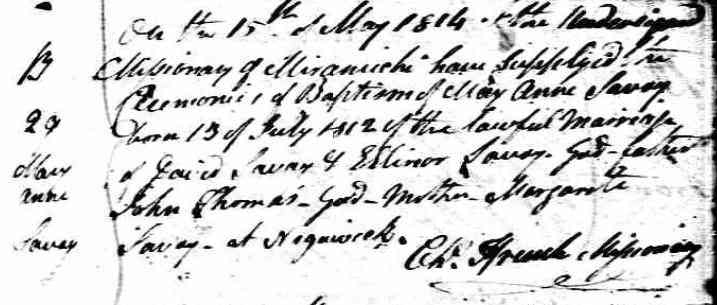 On the 15th of May 1814 I the Undersigned
B Missionary of Miramichi have Supplyed the
Ceremonies of Baptism of Mary Anne Savoy
29 born 13 of July 1812 of the lawful Marriage
Mary of David Savoy & Ellinor Savoy. God-father
anne John Thomas - God-Mother Margarete
Savoy Savoy - at Neguiack.
Chs. Ffrench Missionary